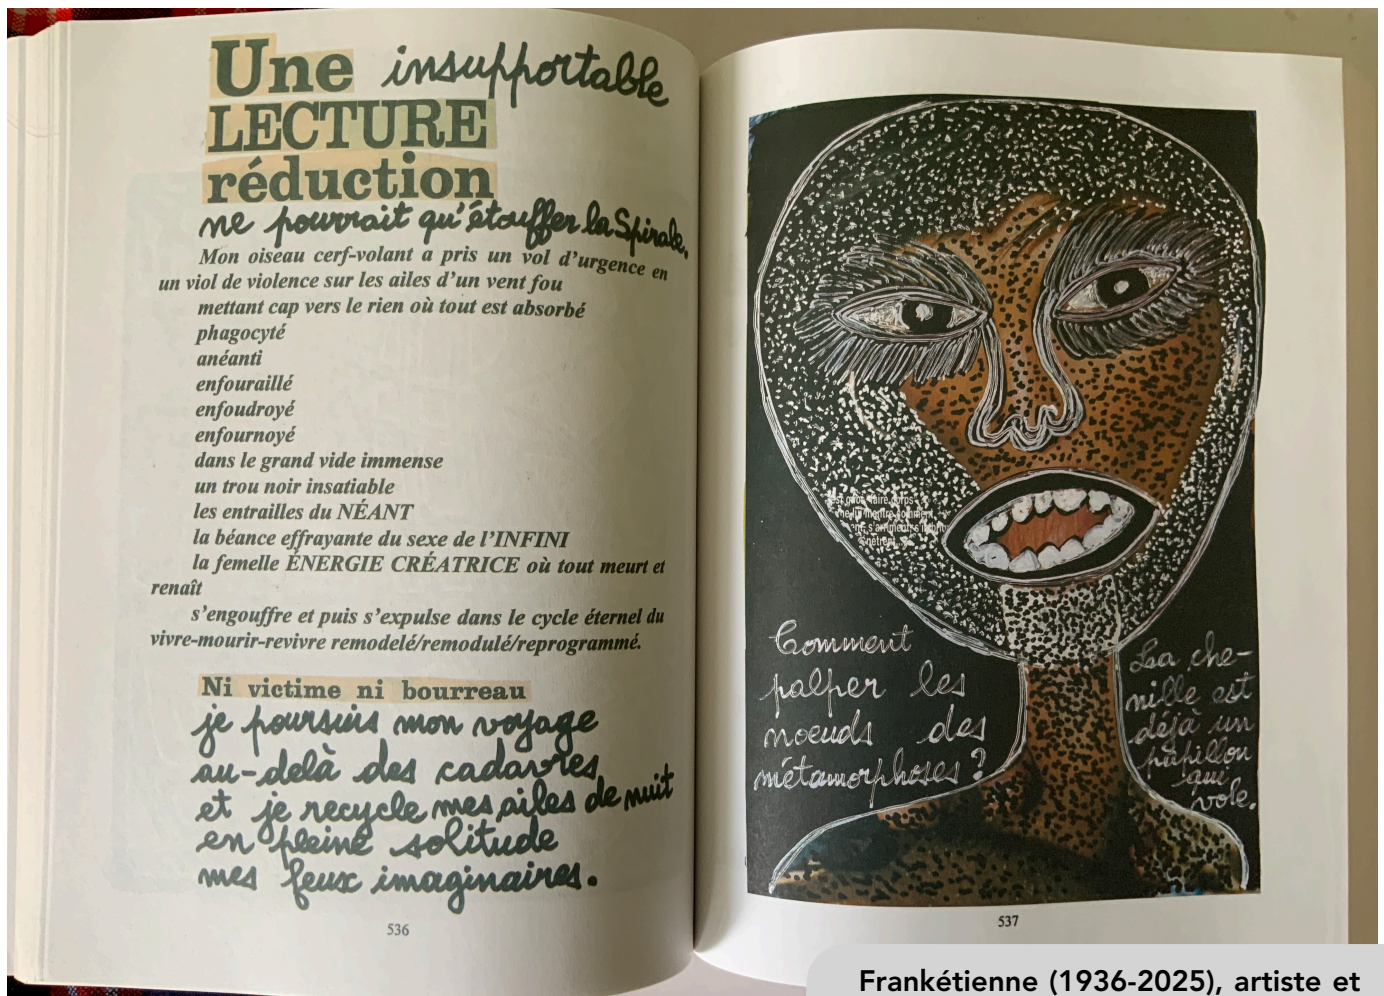 Une insupportable
LECTURE
réduction
ne pourrait qu'étouffer la Spirale.
Mon oiseau cerf-volant a pris un vol d'urgence en
un viol de violence sur les ailes d'un vent fou
mettant cap vers le rien où tout est absorbé
phagocyté
anéanti
enfouraillé
enfoudroyé
enfournoyé
dans le grand vide immense
un trou noir insatiable
les entrailles du NÉANT
la béance effrayante du sexe de l'INFINI
la femelle ÉNERGIE CRÉATRICE où tout meurt et
renaît
s'engouffre et puis s'expulse dans le cycle éternel du
vivre-mourir-revivre remodelé/remodulé/reprogrammé.
Ni victime ni bourreau
je poursuis mon voyage
au-delà des cadavres
et je recycle mes ailes de nuit
en pleine solitude
mes feux imaginaires.
536
faire corps
Comment
palper les
noeuds des
métamorphoses ?
La che-
nille est
déjà un
papillon
qui
vole.
537
Frankétienne (1936-2025), artiste et